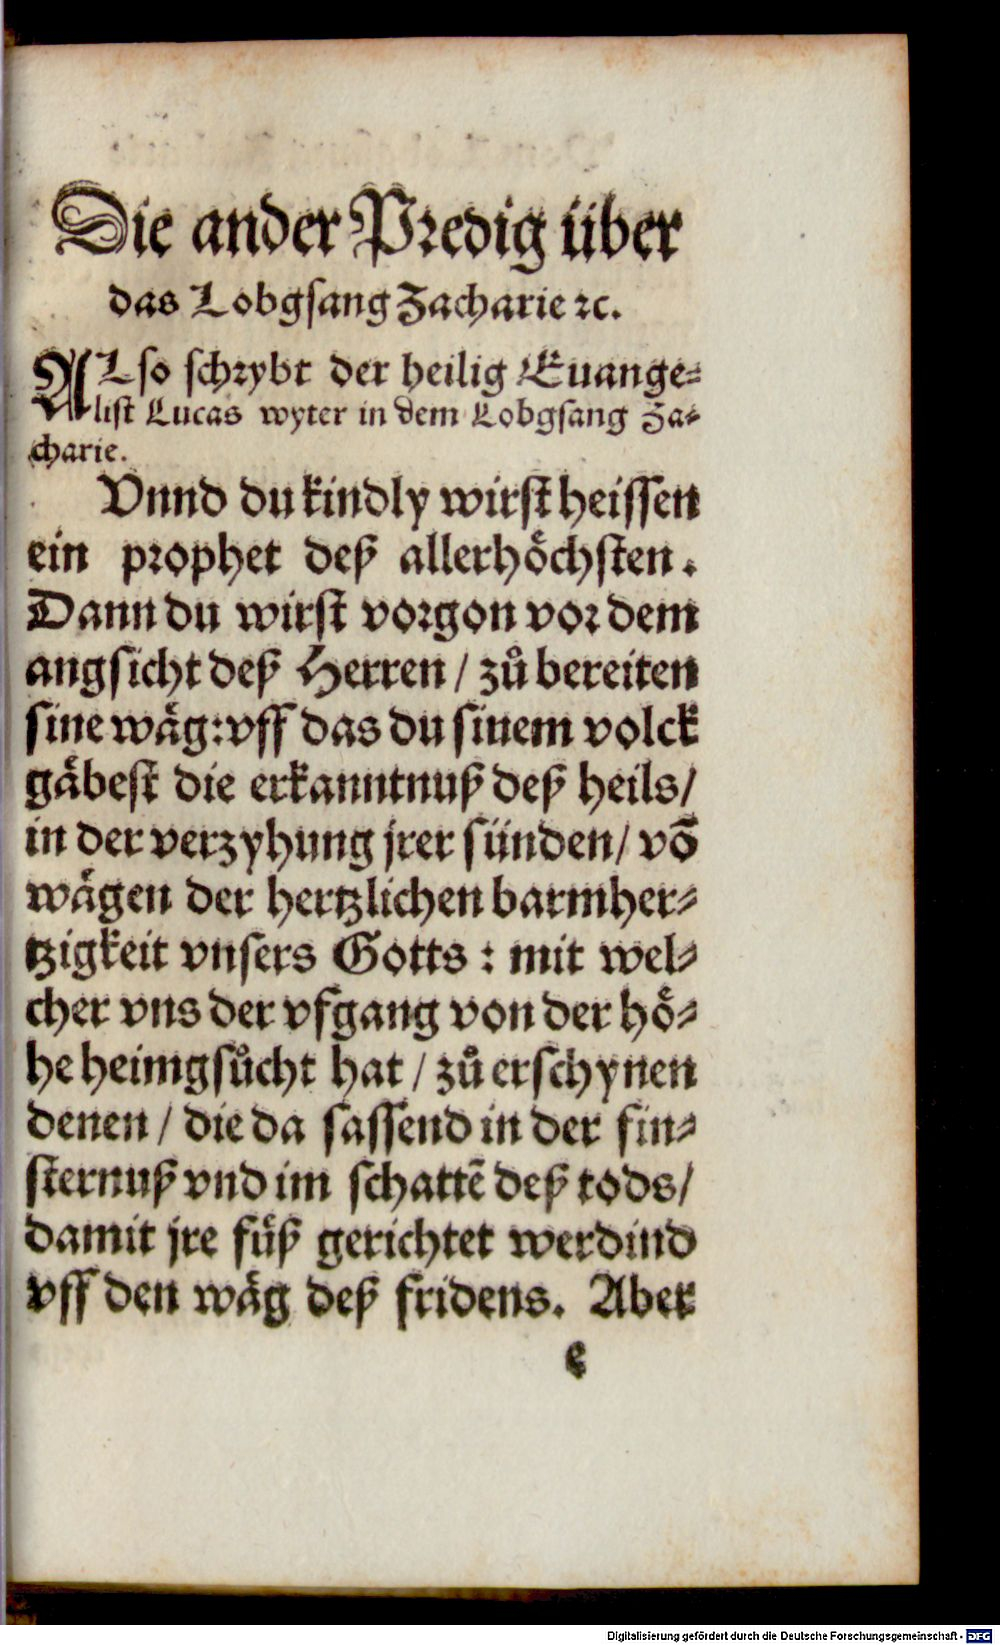 Die ander Predig über
das Lobgsang Zacharie ꝛc.
ALso schrybt der heilig Euange⸗
list Lucas wyter in dem Lobgsang Za⸗
charie.
Vnnd du kindly wirst heissen
ein prophet deß allerhöchsten.
Dann du wirst vorgon vor dem
angsicht deß Herren / zů bereiten
sine wäg: vff das du sinem volck
gäbest die erkanntnuß deß heils /
in der verzyhung jrer sünden / vō
wägen der hertzlichen barmher⸗
tzigkeit vnsers Gotts : mit wel⸗
cher vns der vfgang von der hö⸗
he heimgsůcht hat / zů erschynen
denen / die da sassend in der fin⸗
sternuß vnd im schattē deß tods /
damit jre füß gerichtet werdind
vff den wäg deß fridens. Aber
e
Digitalisierung gefördert durch die Deutsche Forschungsgemeinschaft - DFG